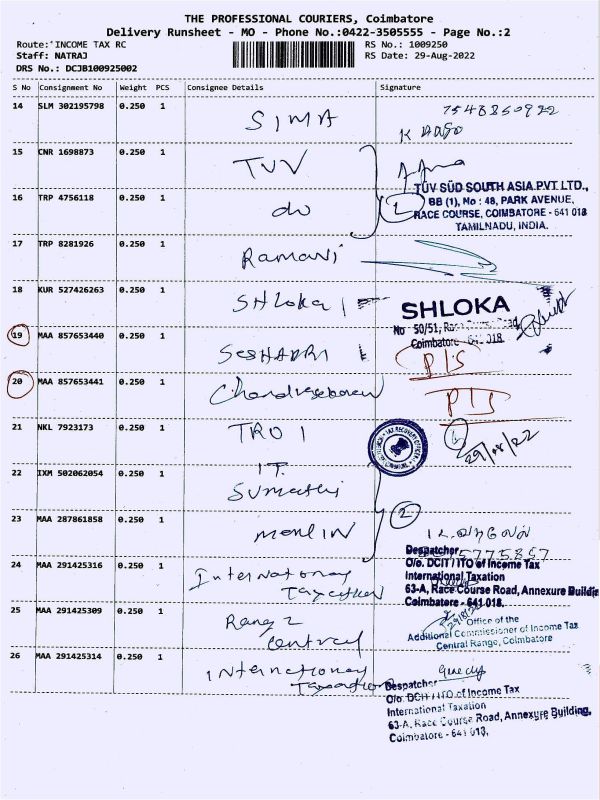 THE PROFESSIONAL COURIERS, Coimbatore
Delivery Runsheet - MO - Phone No.:0422-3505555 - Page No.:2
Route: INCOME TAX RC RS No.: 1009250
Staff: NATRAJ RS Date: 29-Aug-2022
DRS No.: DCJB100925002
S No Consignment No Weight PCS Consignee Details Signature
14 SLM 302195798 0.250 1 SIMA
15 CNR 1698873 0.250 1 TUV
TÜV SÜD SOUTH ASIA PVT LTD.,
16 TRP 4756118 0.250 1 do 2 BB (1), No : 48, PARK AVENUE,
RACE COURSE, COIMBATORE - 641 018
TAMILNADU, INDIA.
17 TRP 8281926 0.250 1 Ramani
18 KUR 527426263 0.250 1 Shloka SHLOKA
No 50/51, Race Course Road,
Coimbatore - 641 018.
19 MAA 857653440 0.250 1 SESHADRI P/S
20 MAA 857653441 0.250 1 Chandrasekaran P/S
21 NKL 7923173 0.250 1 TRO 1 29/08/22
22 IXM 502062054 0.250 1 I.T. Sumathi
2
23 MAA 287861858 0.250 1
Despatcher
O/o. DCIT / ITO of Income Tax
24 MAA 291425316 0.250 1 International Taxation
International Taxation
63-A, Race Course Road, Annexure Building
Coimbatore - 641 018.
25 MAA 291425309 0.250 1 Range 2 Central
Office of the
Additional Commissioner of Income Tax
Central Range, Coimbatore
26 MAA 291425314 0.250 1 International Taxation
Despatcher
O/o. DCIT / ITO of Income Tax
International Taxation
63-A, Race Course Road, Annexure Building,
Coimbatore - 641 018.